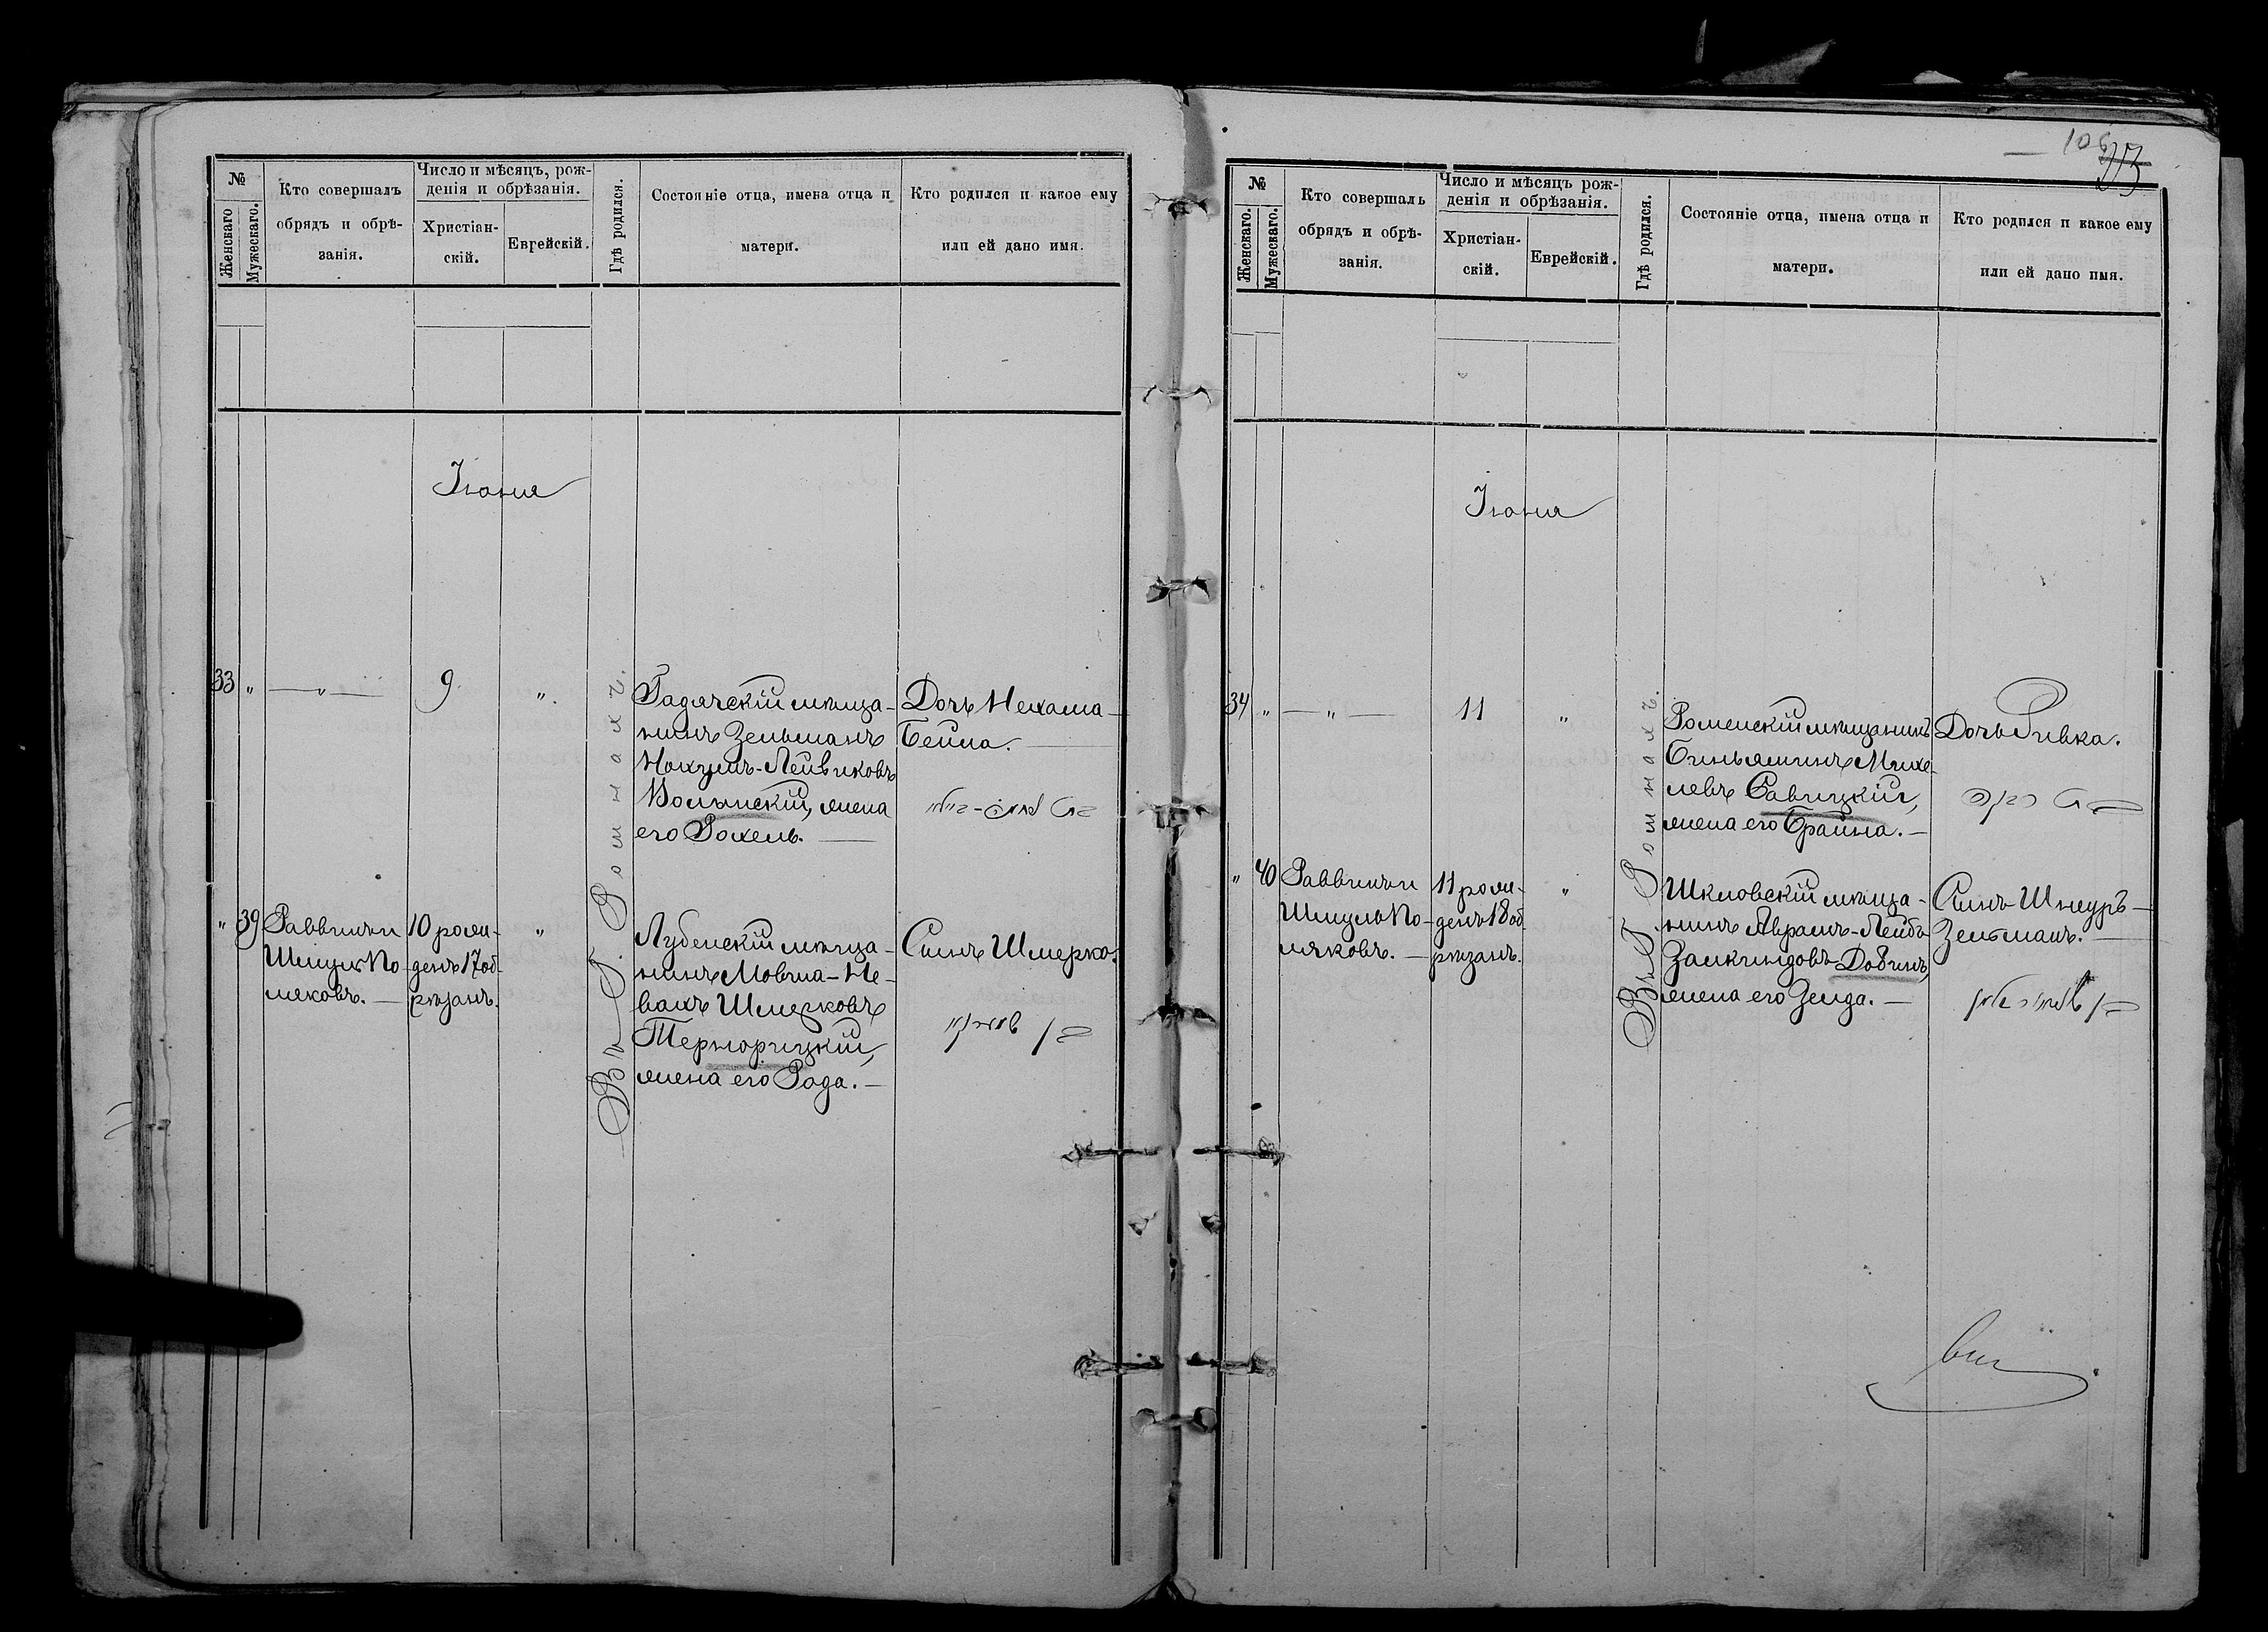 №
Женскаго
Мужескаго.
Кто совершалъ
обрядъ и обрѣ-
занія.
Число и мѣсяцъ, рож-
денія и обрѣзанія.
Христіан-
скій.
Еврейскій.
Гдѣ родился.
Состояніе отца, имена отца и
матери.
Кто родился и какое ему
или ей дано имя.
Іюня
33 " — " — 9 "
Гадячскій мѣща-
нинъ Зельманъ
Нохумъ-Лейвиковъ
Волынскій, жена
его Рохель. —
Дочь Нехама-
Бейла. —
" 39
Раввинъ
Шмуль По-
ляковъ. —
10 рож-
денъ 17 об-
рѣзанъ.
"
Въ Г. Ромнахъ.
Лубенскій мѣща-
нинъ Мовша-Не-
вахъ Шмерковъ
Терноруцкій,
жена его Рода. —
Сынъ Шмерко.
106
№
Женскаго.
Мужескаго.
Кто совершалъ
обрядъ и обрѣ-
занія.
Число и мѣсяцъ рож-
денія и обрѣзанія.
Христіан-
скій.
Еврейскій.
Гдѣ родился.
Состояніе отца, имена отца и
матери.
Кто родился и какое ему
или ей дано имя.
Іюня
34 " — " — 11 "
Роменскій мѣщанинъ
Биньяминъ Михе-
левъ Савицкій,
жена его Брайна. —
Дочь Ривка.
" 40
Раввинъ
Шмуль По-
ляковъ. —
11 рож-
денъ 18 об-
рѣзанъ.
"
Въ Г. Ромнахъ.
Шкловскій мѣща-
нинъ Абрамъ-Лейбъ
Залкиндовъ Добинъ,
жена его Зелда. —
Сынъ Шнеуръ-
Зельманъ. —